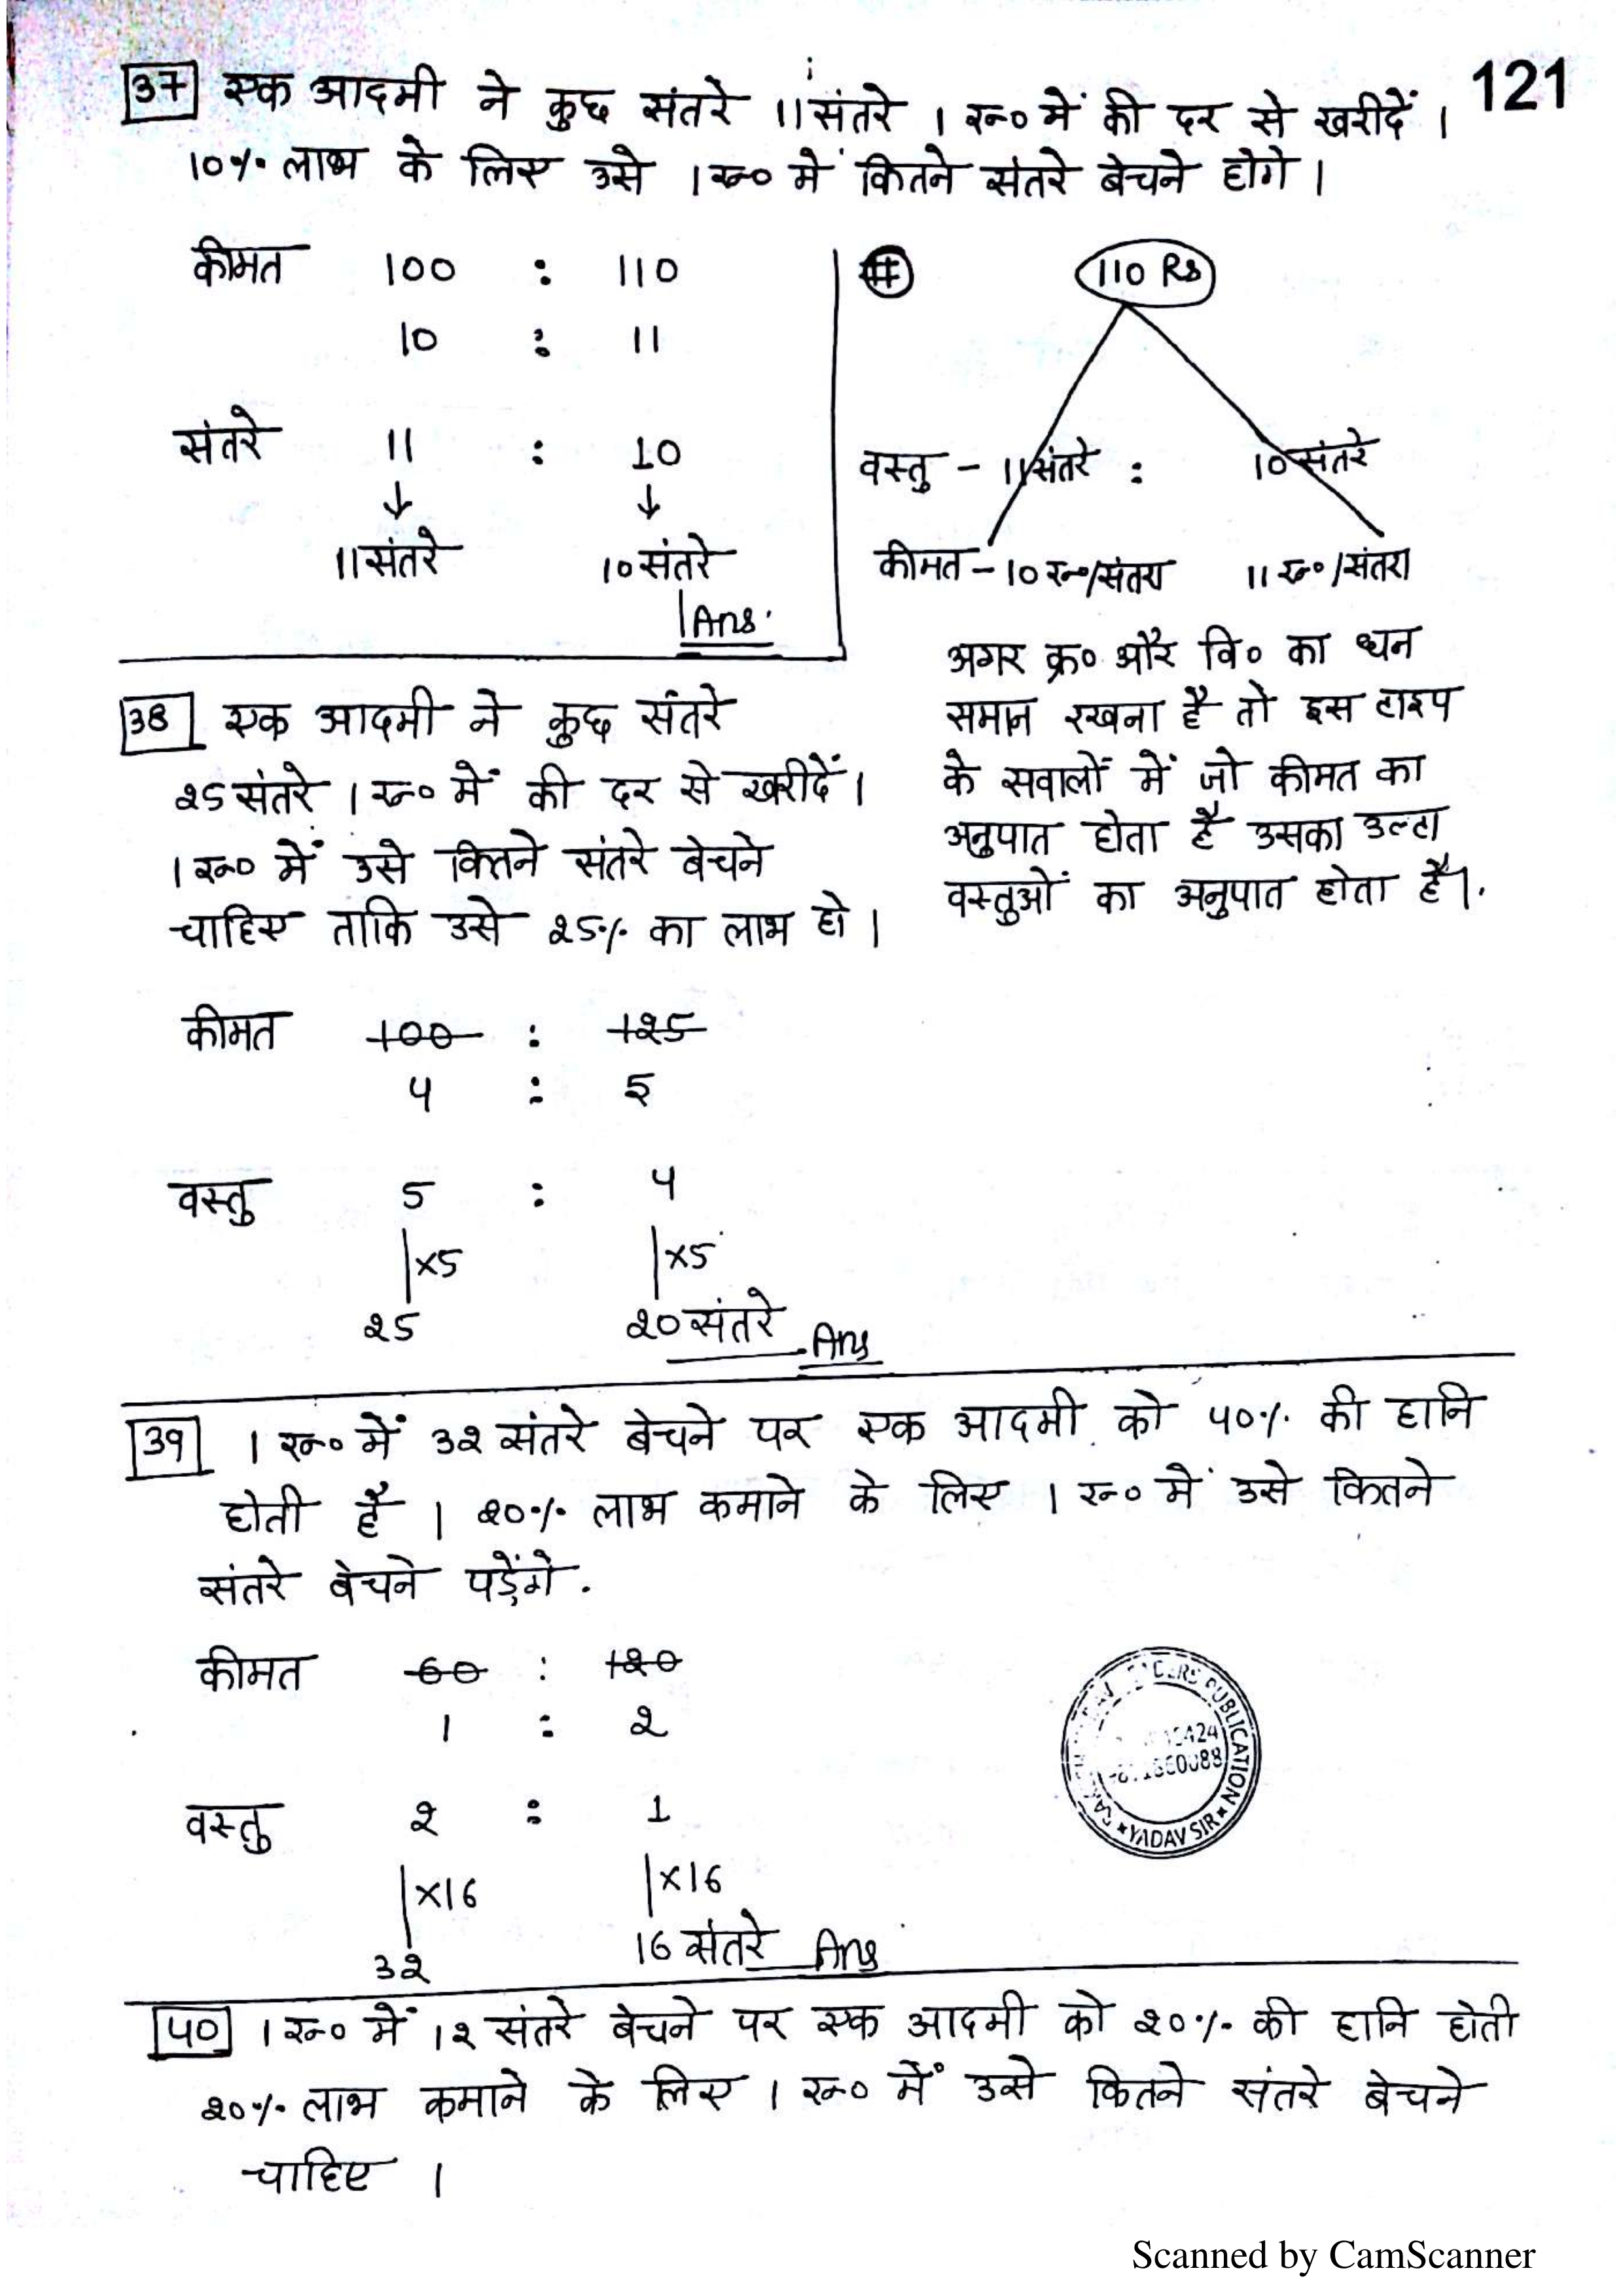 121
37 एक आदमी ने कुछ संतरे 11 संतरे 1 रू० में की दर से खरीदें ।
10% लाभ के लिए उसे 1 रू० में कितने संतरे बेचने होगे ।
कीमत 100 : 110
10 : 11
संतरे 11 : 10
11 संतरे 10 संतरे
Ans.
# 110 Rs
वस्तु - 11 संतरे : 10 संतरे
कीमत - 10 रू०/संतरा 11 रू०/संतरा
अगर क्र० और वि० का धन
समान रखना है तो इस टाइप
के सवालों में जो कीमत का
अनुपात होता है उसका उल्टा
वस्तुओं का अनुपात होता है।.
38 एक आदमी ने कुछ संतरे
25 संतरे 1 रू० में की दर से खरीदें ।
1 रू० में उसे कितने संतरे बेचने
चाहिए ताकि उसे 25% का लाभ हो ।
कीमत 100 : 125
4 : 5
वस्तु 5 : 4
×5 ×5
25 20 संतरे Ans
39 1 रू० में 32 संतरे बेचने पर एक आदमी को 40% की हानि
होती है । 20% लाभ कमाने के लिए 1 रू० में उसे कितने
संतरे बेचने पड़ेंगे .
कीमत 60 : 120
1 : 2
वस्तु 2 : 1
×16 ×16
32 16 संतरे Ans
PUBLICATION
YADAV SIR
40 1 रू० में 12 संतरे बेचने पर एक आदमी को 20% की हानि होती
20% लाभ कमाने के लिए 1 रू० में उसे कितने संतरे बेचने
चाहिए ।
Scanned by CamScanner